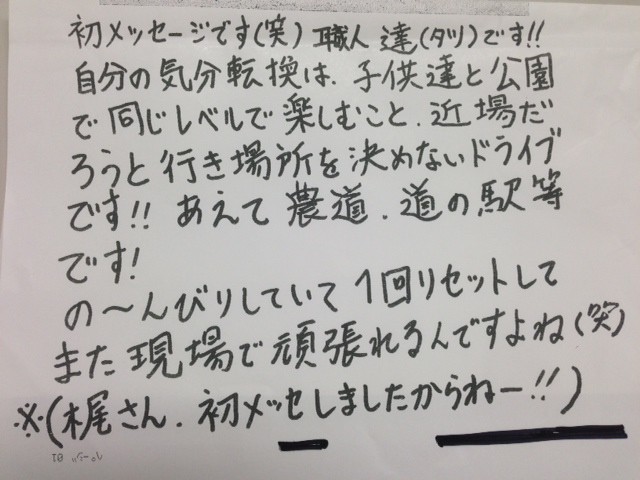 初メッセージです(笑) 職人 達(タツ)です!!
自分の気分転換は、子供達と公園
で同じレベルで楽しむこと、近場だ
ろうと行き場所を決めないドライブ
です!! あえて農道、道の駅等
です!
の〜んびりしていて1回リセットして
また現場で頑張れるんですよね(笑)
※(梶さん、初メッセしましたからねー!!)
ページ: 01